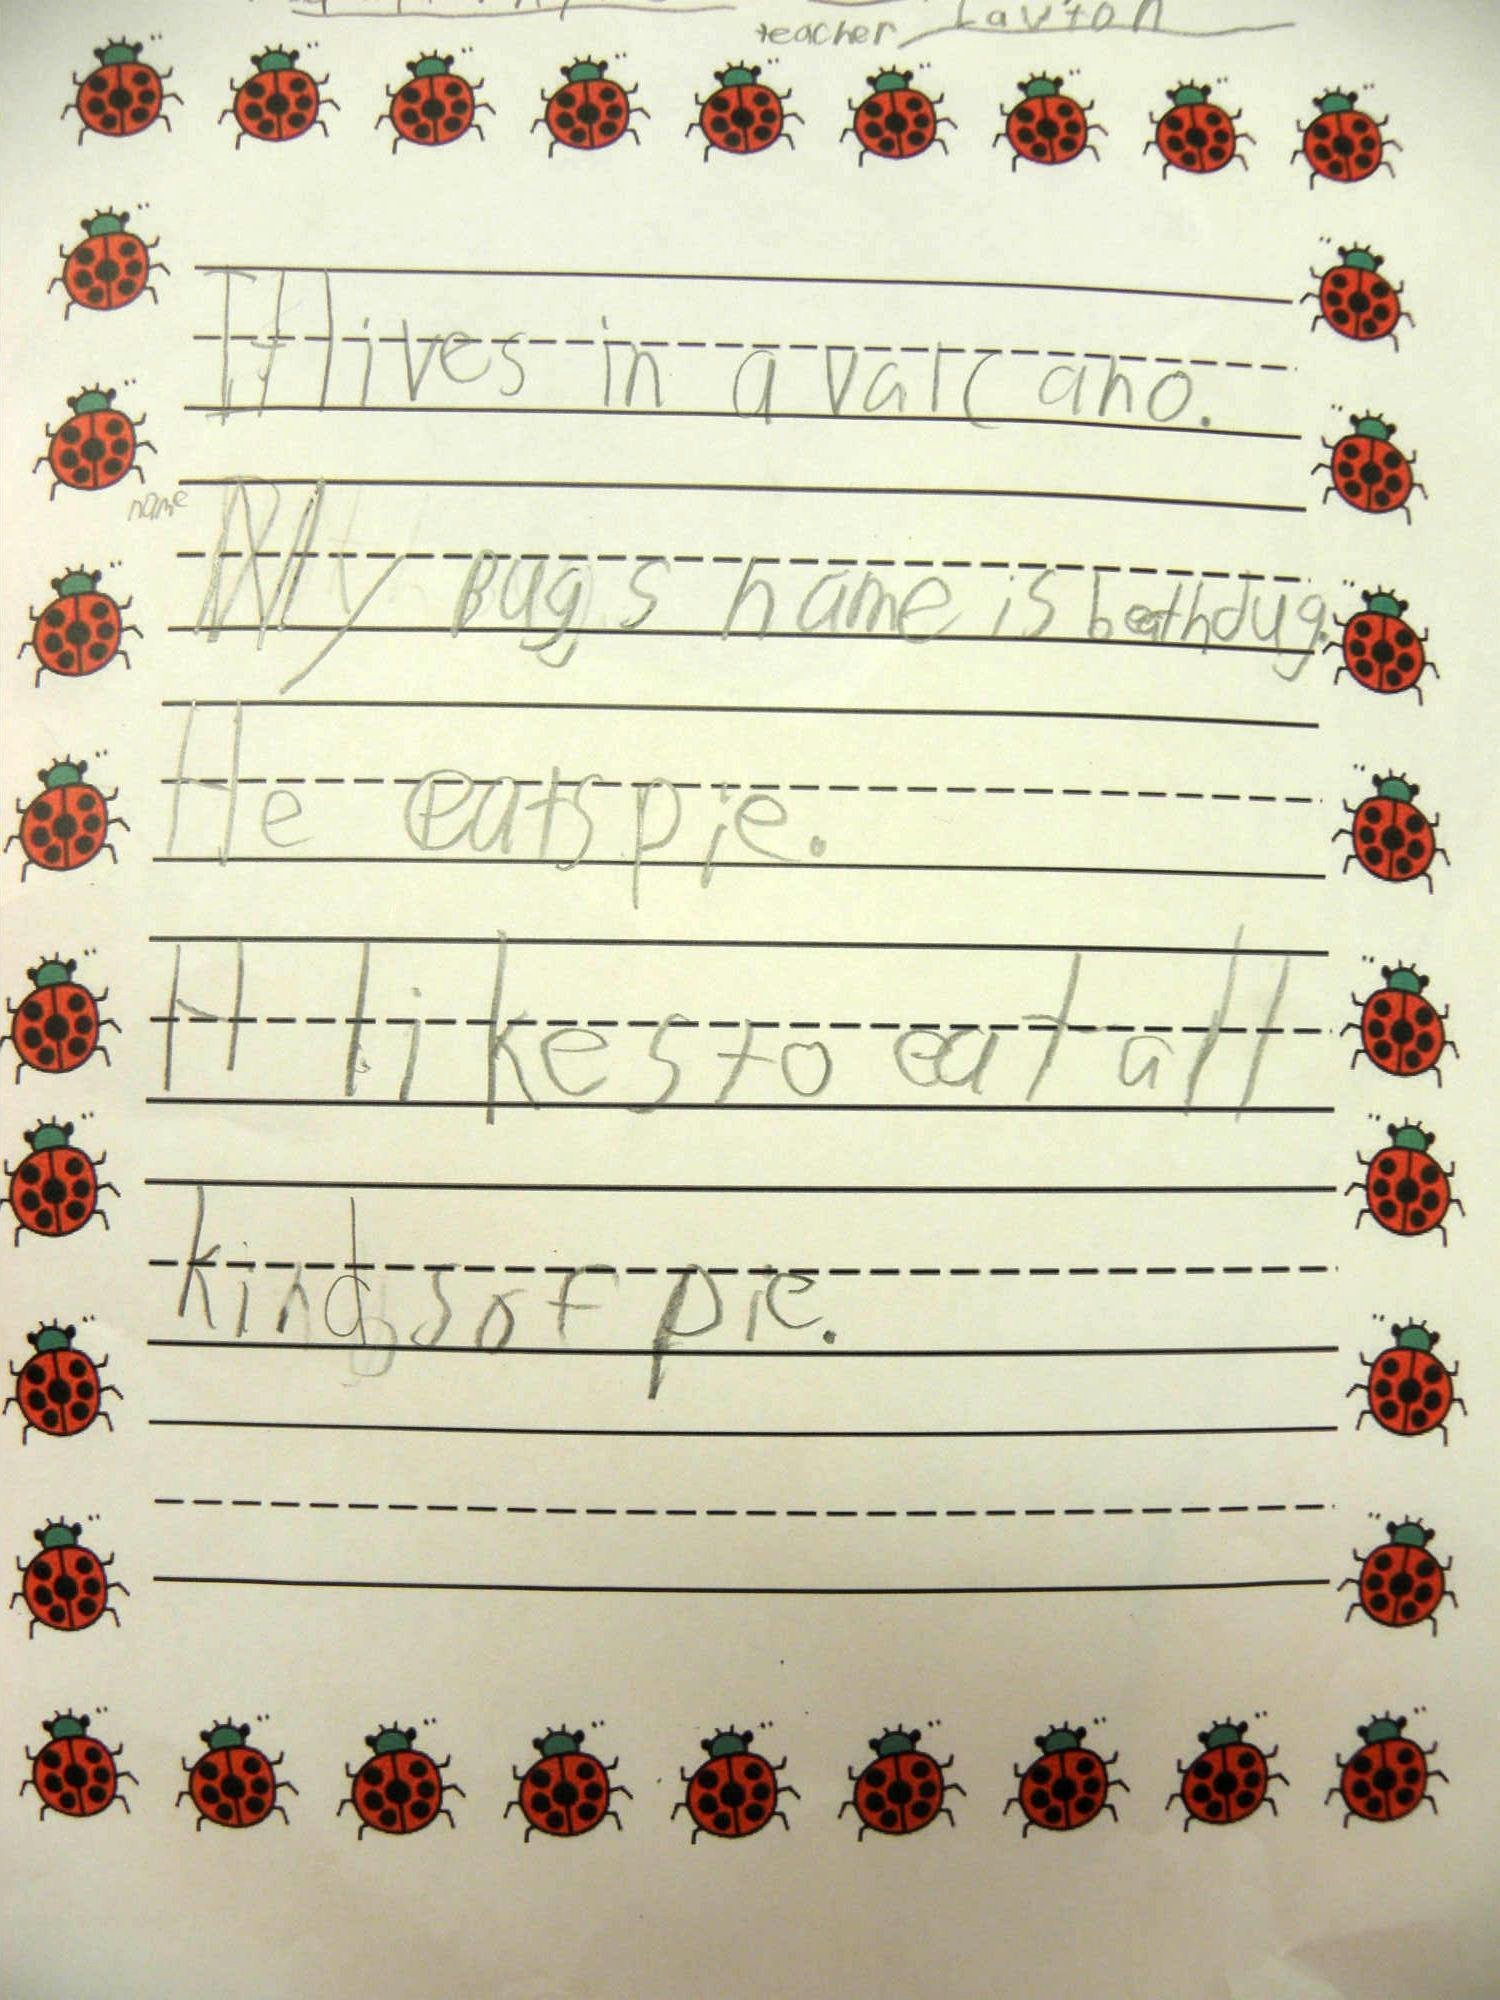 teacher Lavton
It lives in a valcano.
name
My Bug s name is beathdug.
He eats pie.
H likes to eat all
kinds of pie.